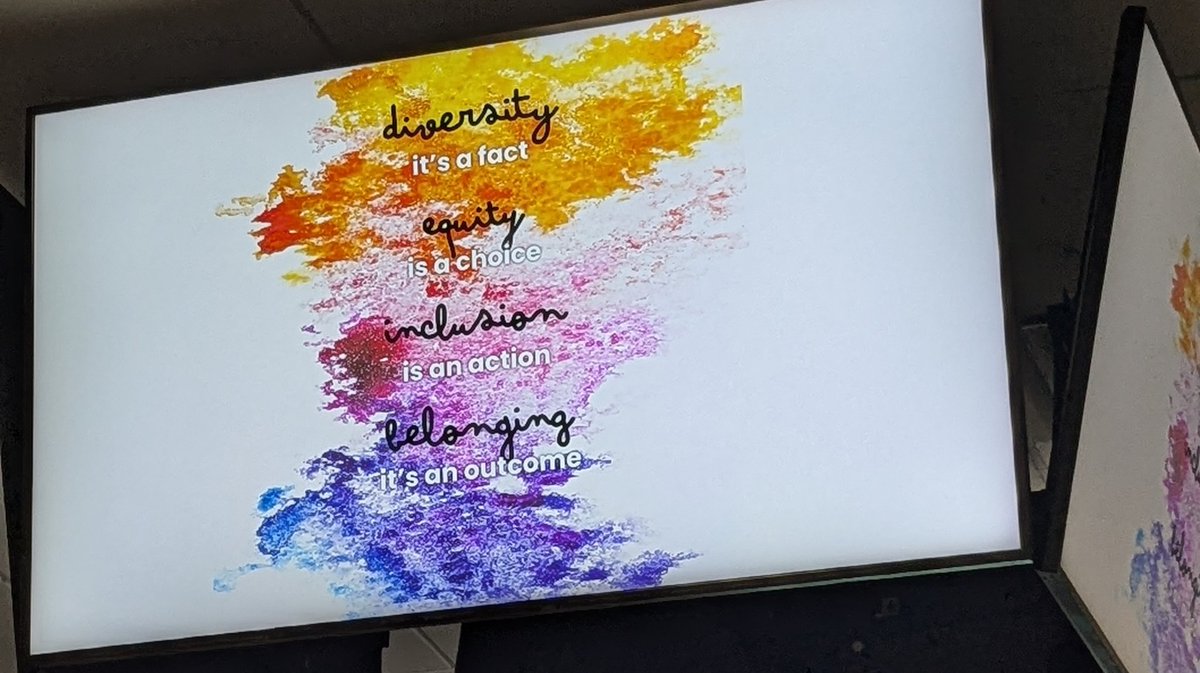 diversity
it's a fact
equity
is a choice
inclusion
is an action
belonging
it's an outcome